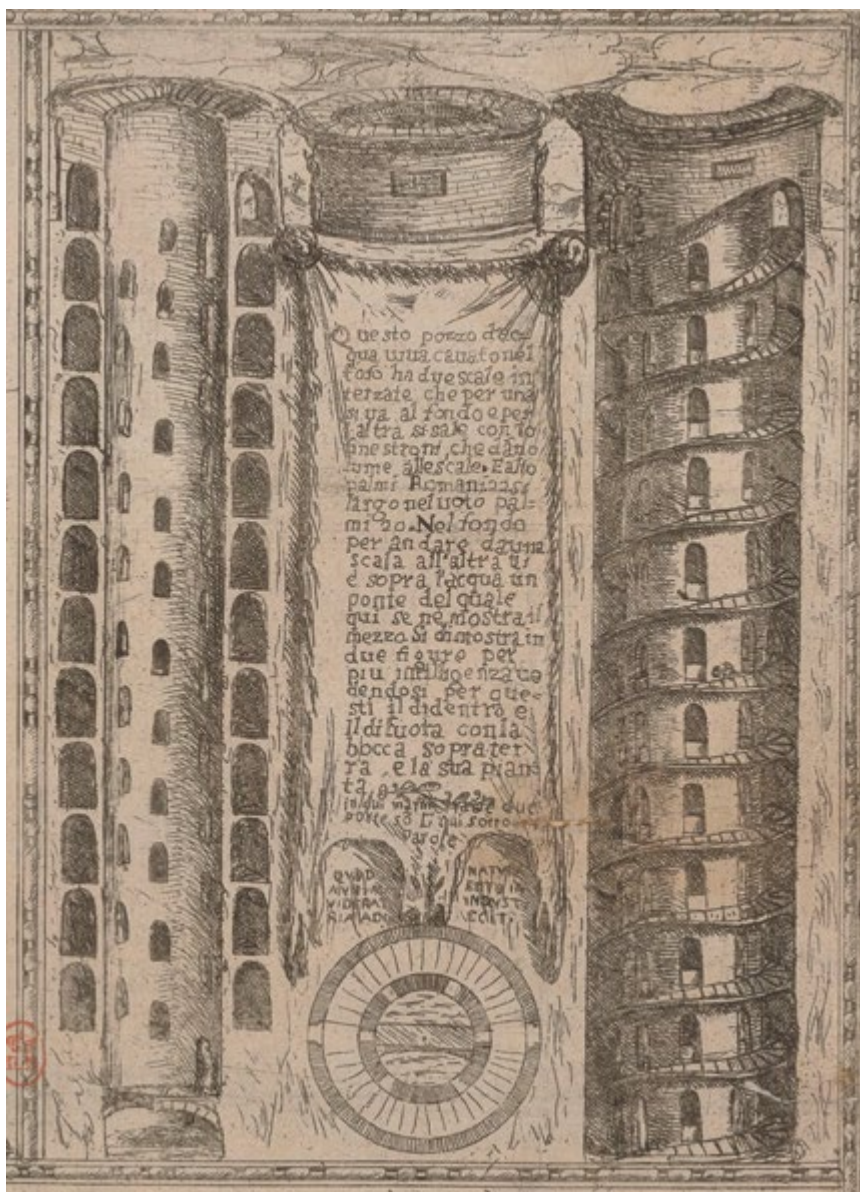 Questo pozzo d'ac-
qua uiua cauato nel
tofo ha due scale in
terzate, che per una
si ua al fondo e per
l'altra si sale con 70
finestroni, che dano
lume alle scale. E alto
palmi Romani
largo nel uoto pal-
mi 20. Nel fondo
per andare da una
scala all'altra ui
è sopra l'acqua un
ponte del quale
qui se ne mostra il
mezzo. Si dimostra in
due figure per
piu intiligenza ue
dendosi per que-
sti il didentro e
il difuora con la
bocca sopra ter-
ra, e la sua pian-
ta
due
porte so qui sotto
parole
QVOD
NATV
MVNIM
VIDERAT
INDVST
RIA ADI
ECIT.